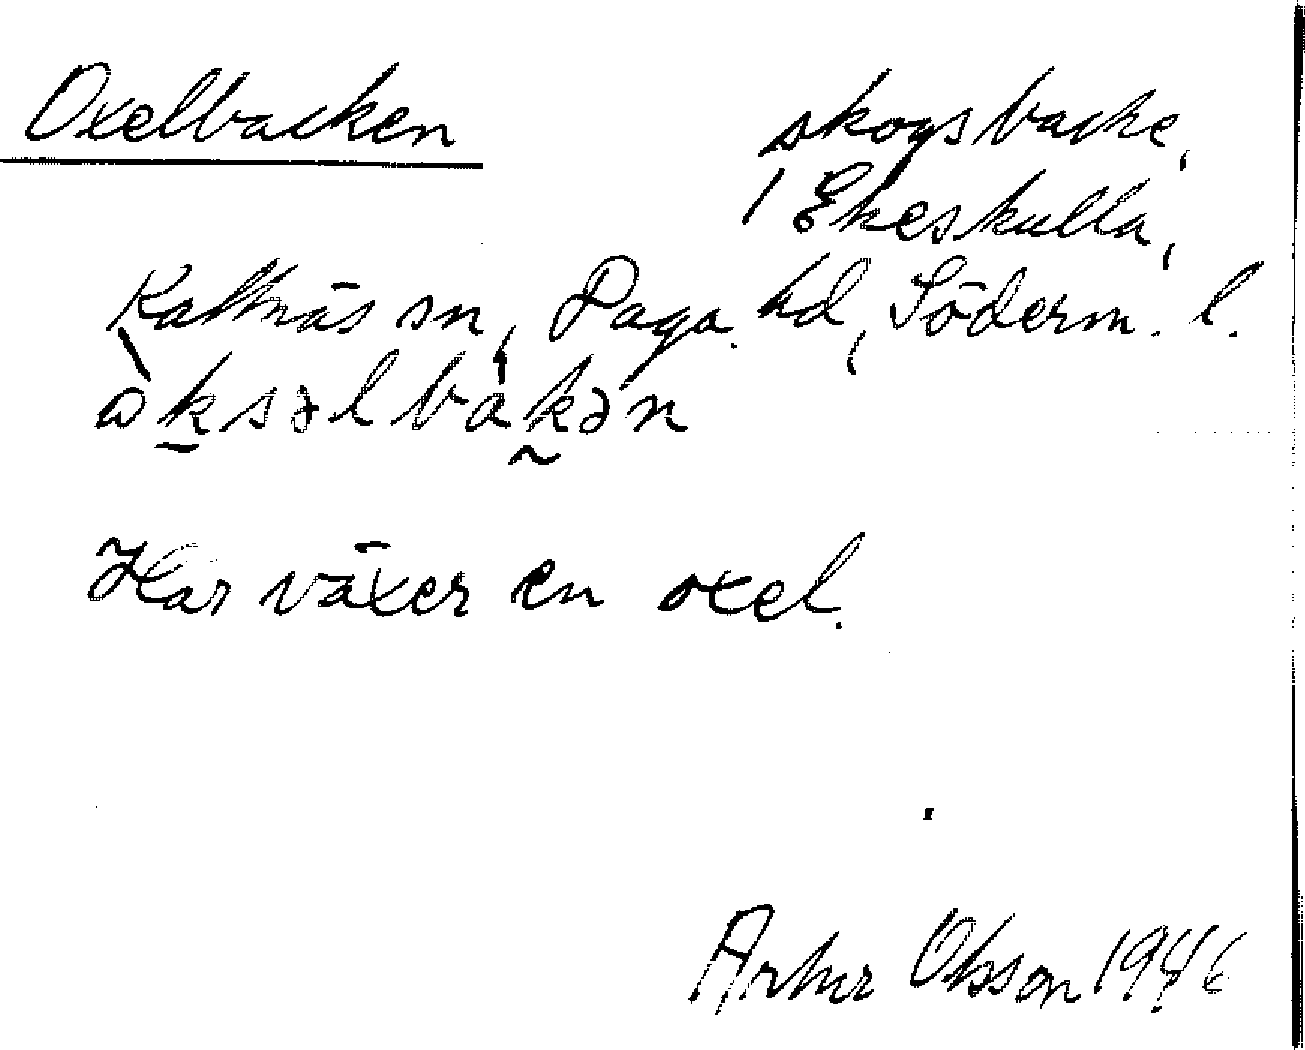 Oxelbacken
skogsbacke,
i Ekeskulla,
Kattnäs sn, Daga hd, Söderm. l.
àksəlbákən
Här växer en oxel.
Artur Olsson 1946